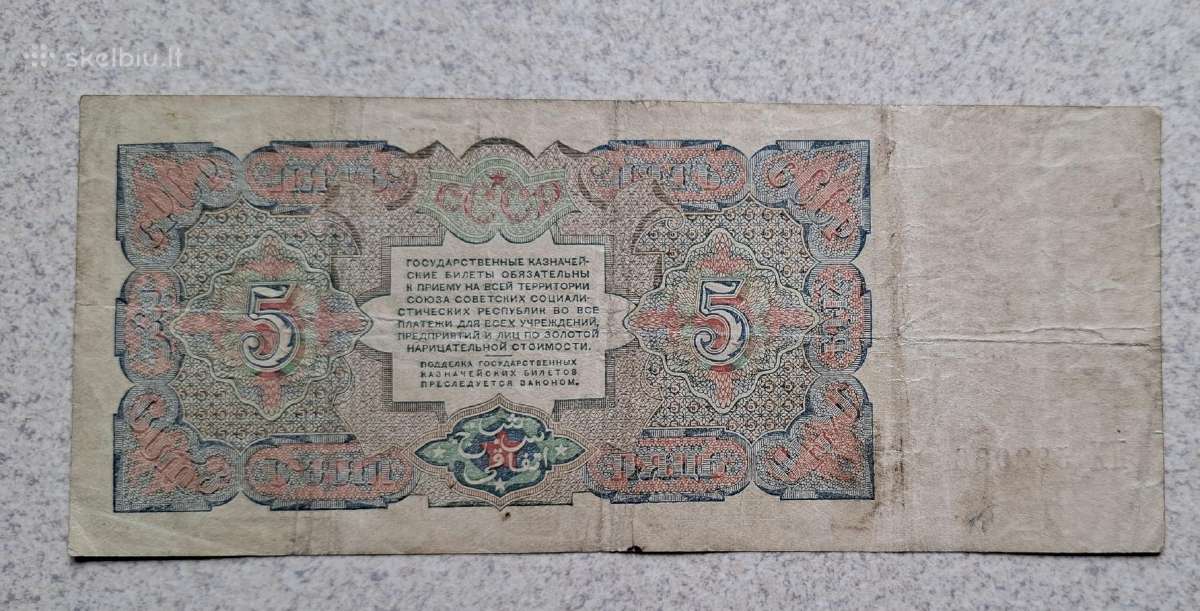 skelbiu.lt
СССР
ГОСУДАРСТВЕННЫЕ КАЗНАЧЕЙ-
СКИЕ БИЛЕТЫ ОБЯЗАТЕЛЬНЫ
К ПРИЕМУ НА ВСЕЙ ТЕРРИТОРИИ
СОЮЗА СОВЕТСКИХ СОЦИАЛИ-
СТИЧЕСКИХ РЕСПУБЛИК ВО ВСЕ
ПЛАТЕЖИ ДЛЯ ВСЕХ УЧРЕЖДЕНИЙ,
ПРЕДПРИЯТИЙ И ЛИЦ ПО ЗОЛОТОЙ
НАРИЦАТЕЛЬНОЙ СТОИМОСТИ.
5
5
ПОДДЕЛКА ГОСУДАРСТВЕННЫХ
КАЗНАЧЕЙСКИХ БИЛЕТОВ
ПРЕСЛЕДУЕТСЯ ЗАКОНОМ.